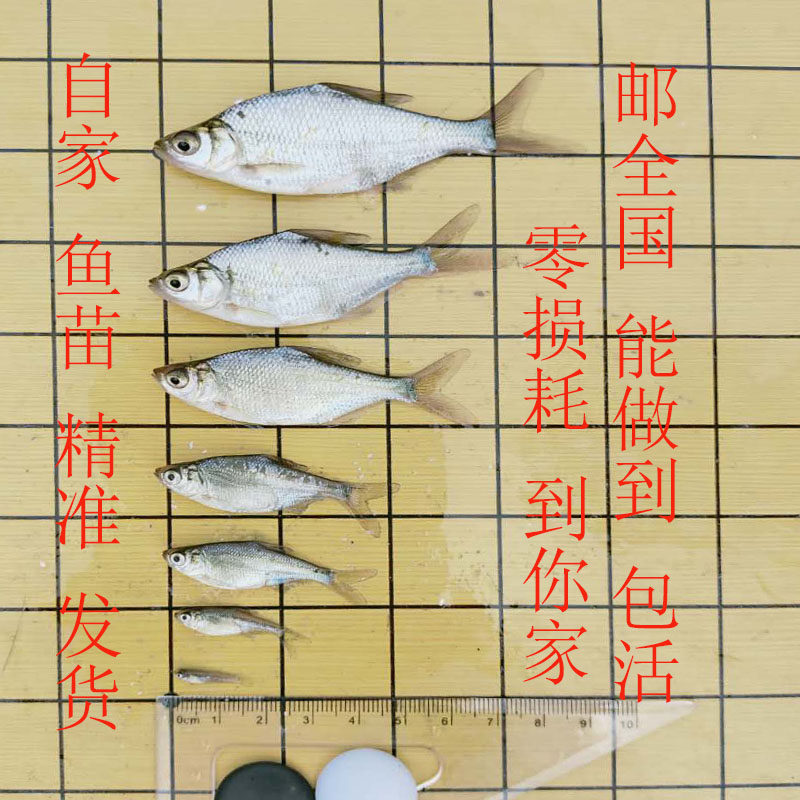 自家 鱼苗 精准 发货
零损耗 到你家
邮全国 能做到 包活
0cm 1 2 3 4 5 6 7 8 9 10